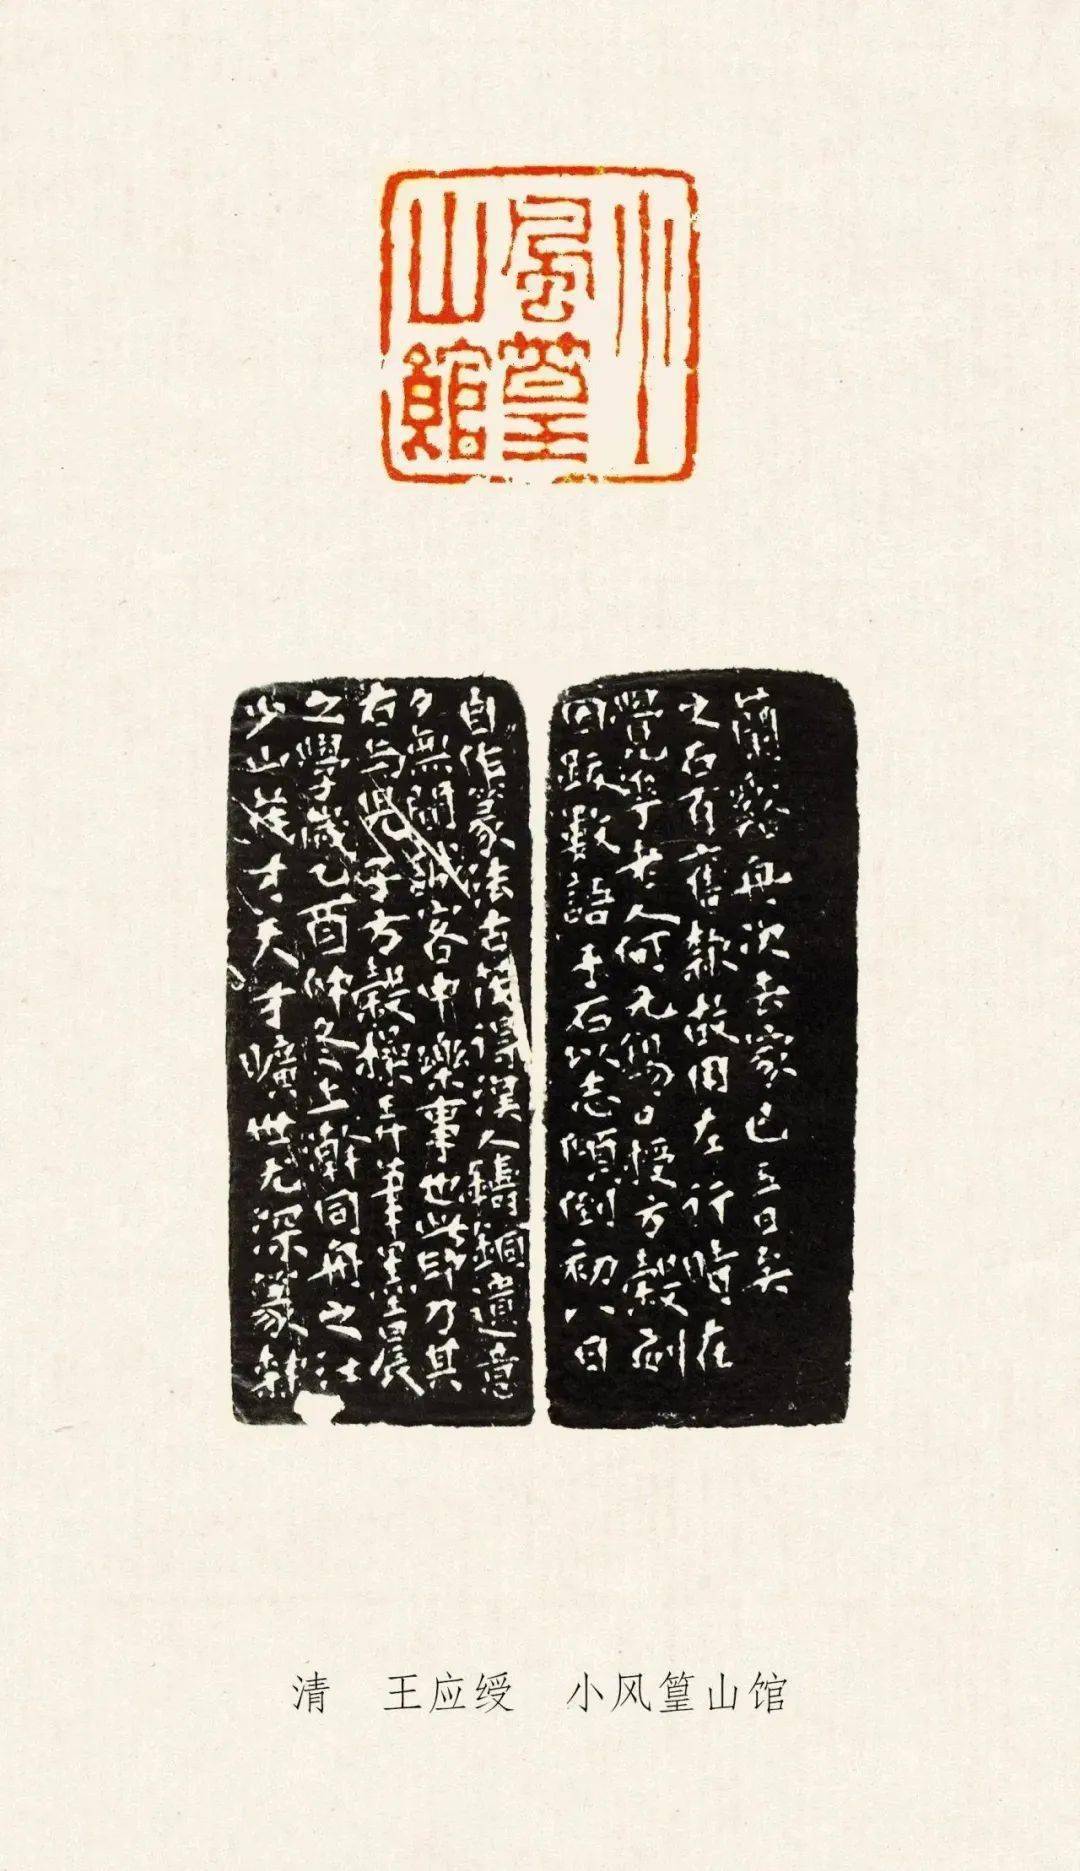 小
風篁
山館
少山茂才天才曠世尤深篆隸
之學歲乙酉仲冬上澣同舟之江
右与兒子方穀操弄筆墨晨
夕無間誠客中樂事也此印乃其
自作篆法古茂得漢人鑄銅遺意
因跋數語于石以志傾倒初八日
老人何元錫口授方穀刻
之石有舊隸故用左行時在
蘭谿舟次去家已三日矣
清 王应绶 小风篁山馆